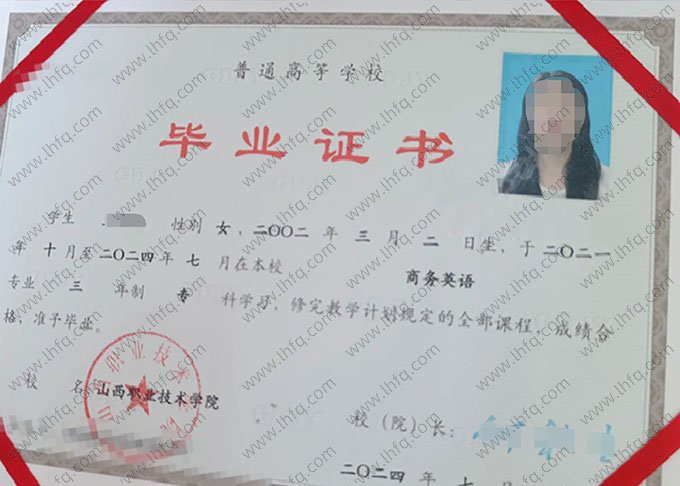 普通高等学校
毕业证书
学生 性别 女，二〇〇二 年 三 月 二 日生，于 二〇二一
年 十 月至 二〇二四 年 七 月在本校 商务英语
专业 三 年制 专 科学习，修完教学计划规定的全部课程，成绩合
格，准予毕业。
校 名：山西职业技术学院
校（院）长：
二〇二四 年 七
www.lhfq.com